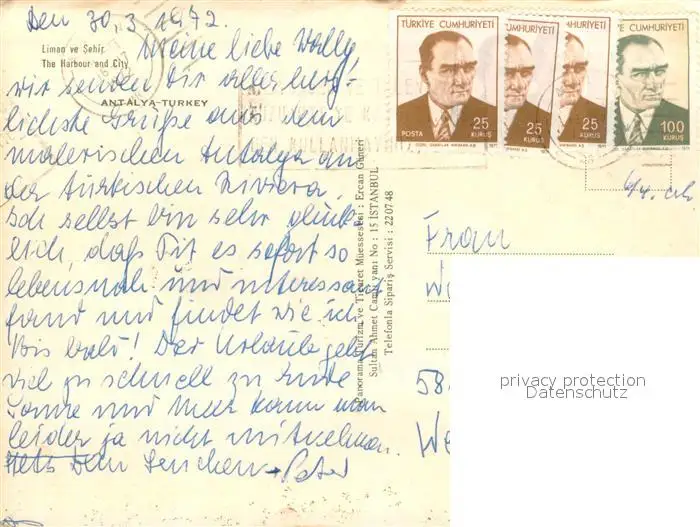 Den 30.3.1972.
Liman ve Şehir
The Harbour and City
ANTALYA-TURKEY
Meine liebe Wally,
wir senden Dir allerherz-
lichste Grüße aus dem
malerischen Antalya an
der türkischen Riviera.
Ich selbst bin sehr glück-
lich, daß Pit es sofort so
lebensnah und interessant
fand und findet wie ich
Bis bald! Der Urlaub geht
viel zu schnell zu Ende
Sonne und Meer kann man
leider ja nicht mitnehmen.
Stets Dein + Peter
Panorama Turizm ve Ticaret Müessesesi : Ercan Güneri
Sultan Ahmet Camii yanı No : 15 İSTANBUL
Telefonla Sipariş Servisi : 22 07 48
TÜRKİYE CUMHURİYETİ
POSTA 25 KURUŞ
25 KURUŞ
25 KURUŞ
TÜRKİYE CUMHURİYETİ
100 KURUŞ
Frau
58
We
privacy protection
Datenschutz